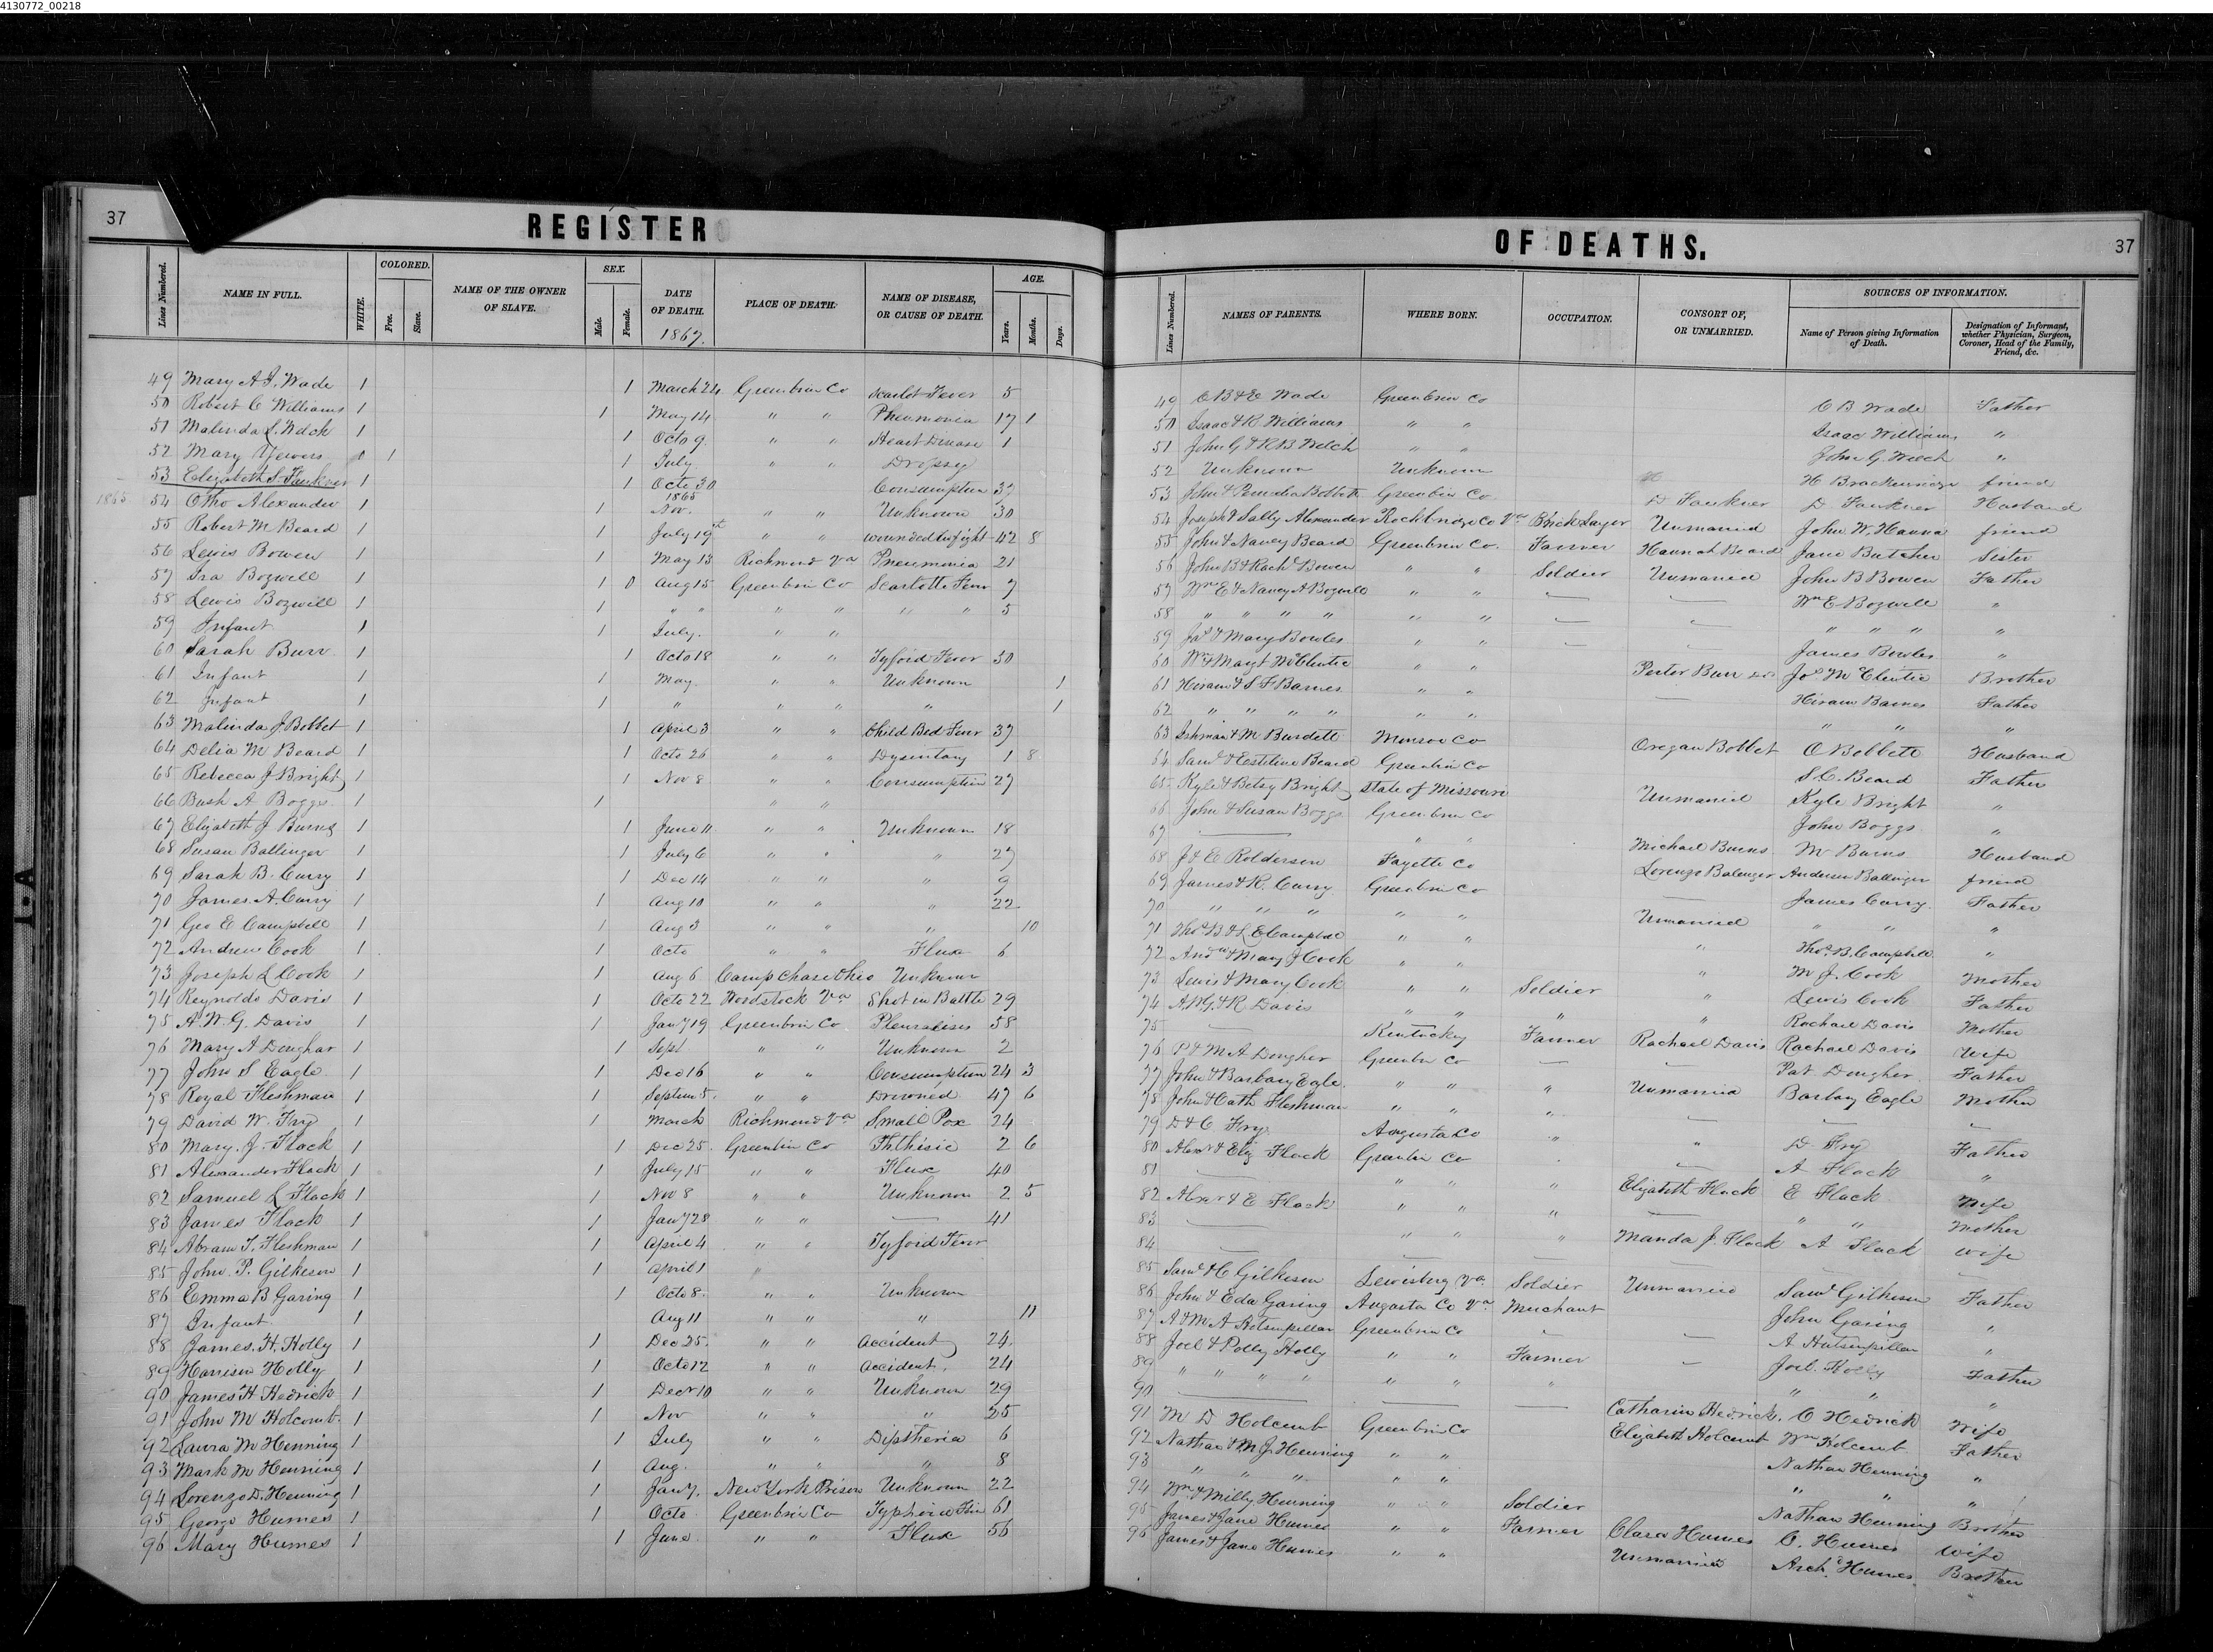 4130772_00218
37
REGISTER
OF DEATHS.
37
Lines Numbered.
NAME IN FULL.
WHITE.
COLORED.
Free.
Slave.
NAME OF THE OWNER
OF SLAVE.
SEX.
Male.
Female.
DATE
OF DEATH.
1867.
PLACE OF DEATH.
NAME OF DISEASE,
OR CAUSE OF DEATH.
AGE.
Years.
Months.
Days.
49 Mary A J. Wade 1 1 March 24 Greenbrier Co Scarlet Fever 5
50 Robert C Williams 1 1 May 14 " " Pneumonia 17 1
51 Malinda S. Welch 1 1 Octo 9. " " Heart Disease 1
52 Mary Yewers 0 1 1 July " " Dropsy
53 Elizabeth S. Faukner 1 1 Octo 30 Consumption 37
1865 54 Otho Alexander 1 1 1865 Nov. " " Unknown 30
55 Robert M Beard 1 1 July 19th " " wounded in fight 42 8
56 Lewis Bowen 1 1 May 13 Richmond Va Pneumonia 21
57 Ira Bozwell 1 1 0 Aug 15 Greenbrier Co Scarlotte Fever 7
58 Lewis Bozwell 1 1 " " " " " " 5
59 Infant 1 1 July. " "
60 Sarah Burr 1 1 Octo 18 " " Tyfoid Fever 30
61 Infant 1 1 May. " " Unknown 1
62 Infant 1 1 " " " " 1
63 Malinda J Bobbet 1 1 April 3 " " Child Bed Fever 37
64 Delia M Beard 1 1 Octo 26 " " Dysintary 1 8
65 Rebecca J Bright 1 1 Nov 8 " " Consumption 27
66 Bush A Boggs 1 1 " "
67 Elizabeth J Burns 1 1 June 11. " " Unknown 18
68 Susan Ballinger 1 1 July 6 " " " 27
69 Sarah B. Curry 1 1 Dec 14 " " " 9
70 James A. Curry 1 1 Aug 10 " " " 22
71 Geo E Campbell 1 1 Aug 3 " " " 10
72 Andrew Cook 1 1 Octo " " Flux 6
73 Joseph L Cook 1 1 Aug 6 Camp Chase Ohio Unknown
74 Reynolds Davis 1 1 Octo 22 Woodstock Va Shot in Battle 29
75 A. W. G. Davis 1 1 Jany 19 Greenbrier Co. Pleuralisis 58
76 Mary A Dougher 1 1 Sept " " Unknown 2
77 John S Eagle 1 1 Dec 16 " " Consumption 24 3
78 Royal Fleshman 1 1 Septem 5. " " Drowned 47 6
79 David W. Fry 1 1 March Richmond Va Small Pox 24
80 Mary. J. Flack 1 1 Dec 25. Greenbrier Co Phthisic 2 6
81 Alexander Flack 1 1 July 15 " " Flux 40
82 Samuel L Flack 1 1 Nov 8 " " Unknown 2 5
83 James Flack 1 1 Jany 28 " " — 41
84 Abram T. Fleshman 1 1 April 4 " " Tyfoid Fever
85 John. P. Gilkeson 1 1 April 1 "
86 Emma B Garing 1 1 Octo 8. " " Unknown
87 Infant 1 Aug 11 " " " 11
88 James. H. Holly 1 1 Dec 25. " " Accident 24.
89 Harrison Holly 1 1 Octo 12 " " Accident. 24
90 James H Hedrick 1 1 Decr 10 " " Unknown 29
91 John M Holcomb. 1 1 Nov " " " 25
92 Laura M Henning 1 1 July " " Diptheria 6
93 Mark M Henning 1 1 Aug. " " " 8
94 Lorenzo D. Henning 1 1 Jany. New York Prison Unknown 22
95 George Humes 1 1 Octo Greenbrier Co Typhoid Fever 61
96 Mary Humes 1 1 June. " " Flux 56
Lines Numbered.
NAMES OF PARENTS.
WHERE BORN.
OCCUPATION.
CONSORT OF,
OR UNMARRIED.
SOURCES OF INFORMATION.
Name of Person giving Information
of Death.
Designation of Informant,
whether Physician, Surgeon,
Coroner, Head of the Family,
Friend, &c.
49 C B & E Wade Greenbrier Co C B Wade Father
50 Isaac & R Williams " " Isaac Williams "
51 John G & R B Welch " " John G. Welch "
52 Unknown Unknown H Brackenridge friend
53 John & Bobbett Greenbrier Co. D Faukner D Faukner Husband
54 Joseph & Sally Alexander Rockbridge Co Va Brick Layer Unmarried John W. Hanna friend
55 John & Nancy Beard Greenbrier Co. Farmer Hannah Beard Jane Butcher Sister
56 John B & Rachl Bowen " " Soldier Unmarried John B Bowen Father
57 Wm E & Nancy A Bozwell " " — — Wm E Bozwell "
58 " " " " " " — — " " " "
59 Jas & Mary Bowles " " — James Bowles "
60 Wm & Margt McClintic " " Peter Burr Jos McClintic Brother
61 Hiram & S F Barnes " " — Hiram Barnes Father
62 " " " " " " " " "
63 Ishman & M Burdett Monroe Co Oregan Bobbet O Bobbett Husband
64 Saml & Esteline Beard Greenbrier Co S. C. Beard Father
65 Kyle & Betsy Bright State of Missouri Unmarried Kyle Bright "
66 John & Susan Boggs Greenbrier Co John Boggs "
67 — " " Michael Burns M Burns Husband
68 J & E Rolderson Fayette Co Lorenzo Balenger Anderson Ballinger friend
69 James & R. Curry Greenbrier Co — James Curry Father
70 " " " " " Unmarried " " " "
71 Thos B & L E Campbell " " " Thos. B. Campbell "
72 Andw & Mary J Cook " " " M J. Cook Mother
73 Lewis & Mary Cook " " Soldier " Lewis Cook Father
74 A. W. G. & R Davis " " " " Rachael Davis Mother
75 — Kentucky Farmer Rachael Davis Rachael Davis Wife
76 P & M A Dougher Greenbr Co — — Pat Dougher Father
77 John & Barbary Eagle. " " " Unmarried Barbary Eagle Mother
78 John & Cath Fleshman " " " — — —
79 D & C Fry. Augusta Co " " D Fry Father
80 Alexr & Eliz Flack Greenbr Co — A Flack "
81 — " " " Elizabeth Flack E Flack Wife
82 Alexr & E Flack " " " — " " Mother
83 — " " " Manda J. Flack A Flack Wife
84 — — — — — —
85 Saml & C Gilkeson Lewisburg Va Soldier Unmarried Saml Gilkeson Father
86 John & Eda Garing Augusta Co Va Merchant John Garing "
87 A & M A Hutsinpillar Greenbrier Co — — A Hutsinpillar "
88 Joel & Polly Holly " " Farmer — Joel. Holly Father
89 " " " " " " " " " "
90 — — — Catharine Hedrick. C Hedrick Wife
91 M D Holcomb Greenbrier Co Elizabeth Holcomb Wm Holcomb Father
92 Nathan & M J. Henning " " Nathan Henning "
93 " " " " " " " "
94 Wm & Milly Henning " " Soldier Nathan Henning Brother
95 James & Jane Humes " " Farmer Clara Humes C. Humes Wife
96 James & Jane Humes " " Unmarried Archd Humes. Brother